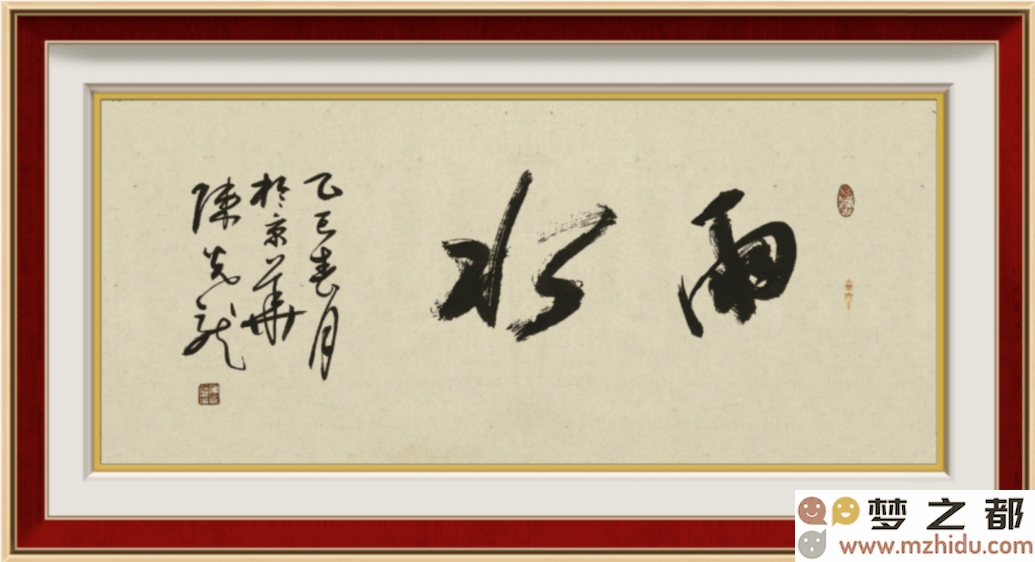 雨水
乙巳春月
於京華
陳光龍
梦之都
www.mzhidu.com